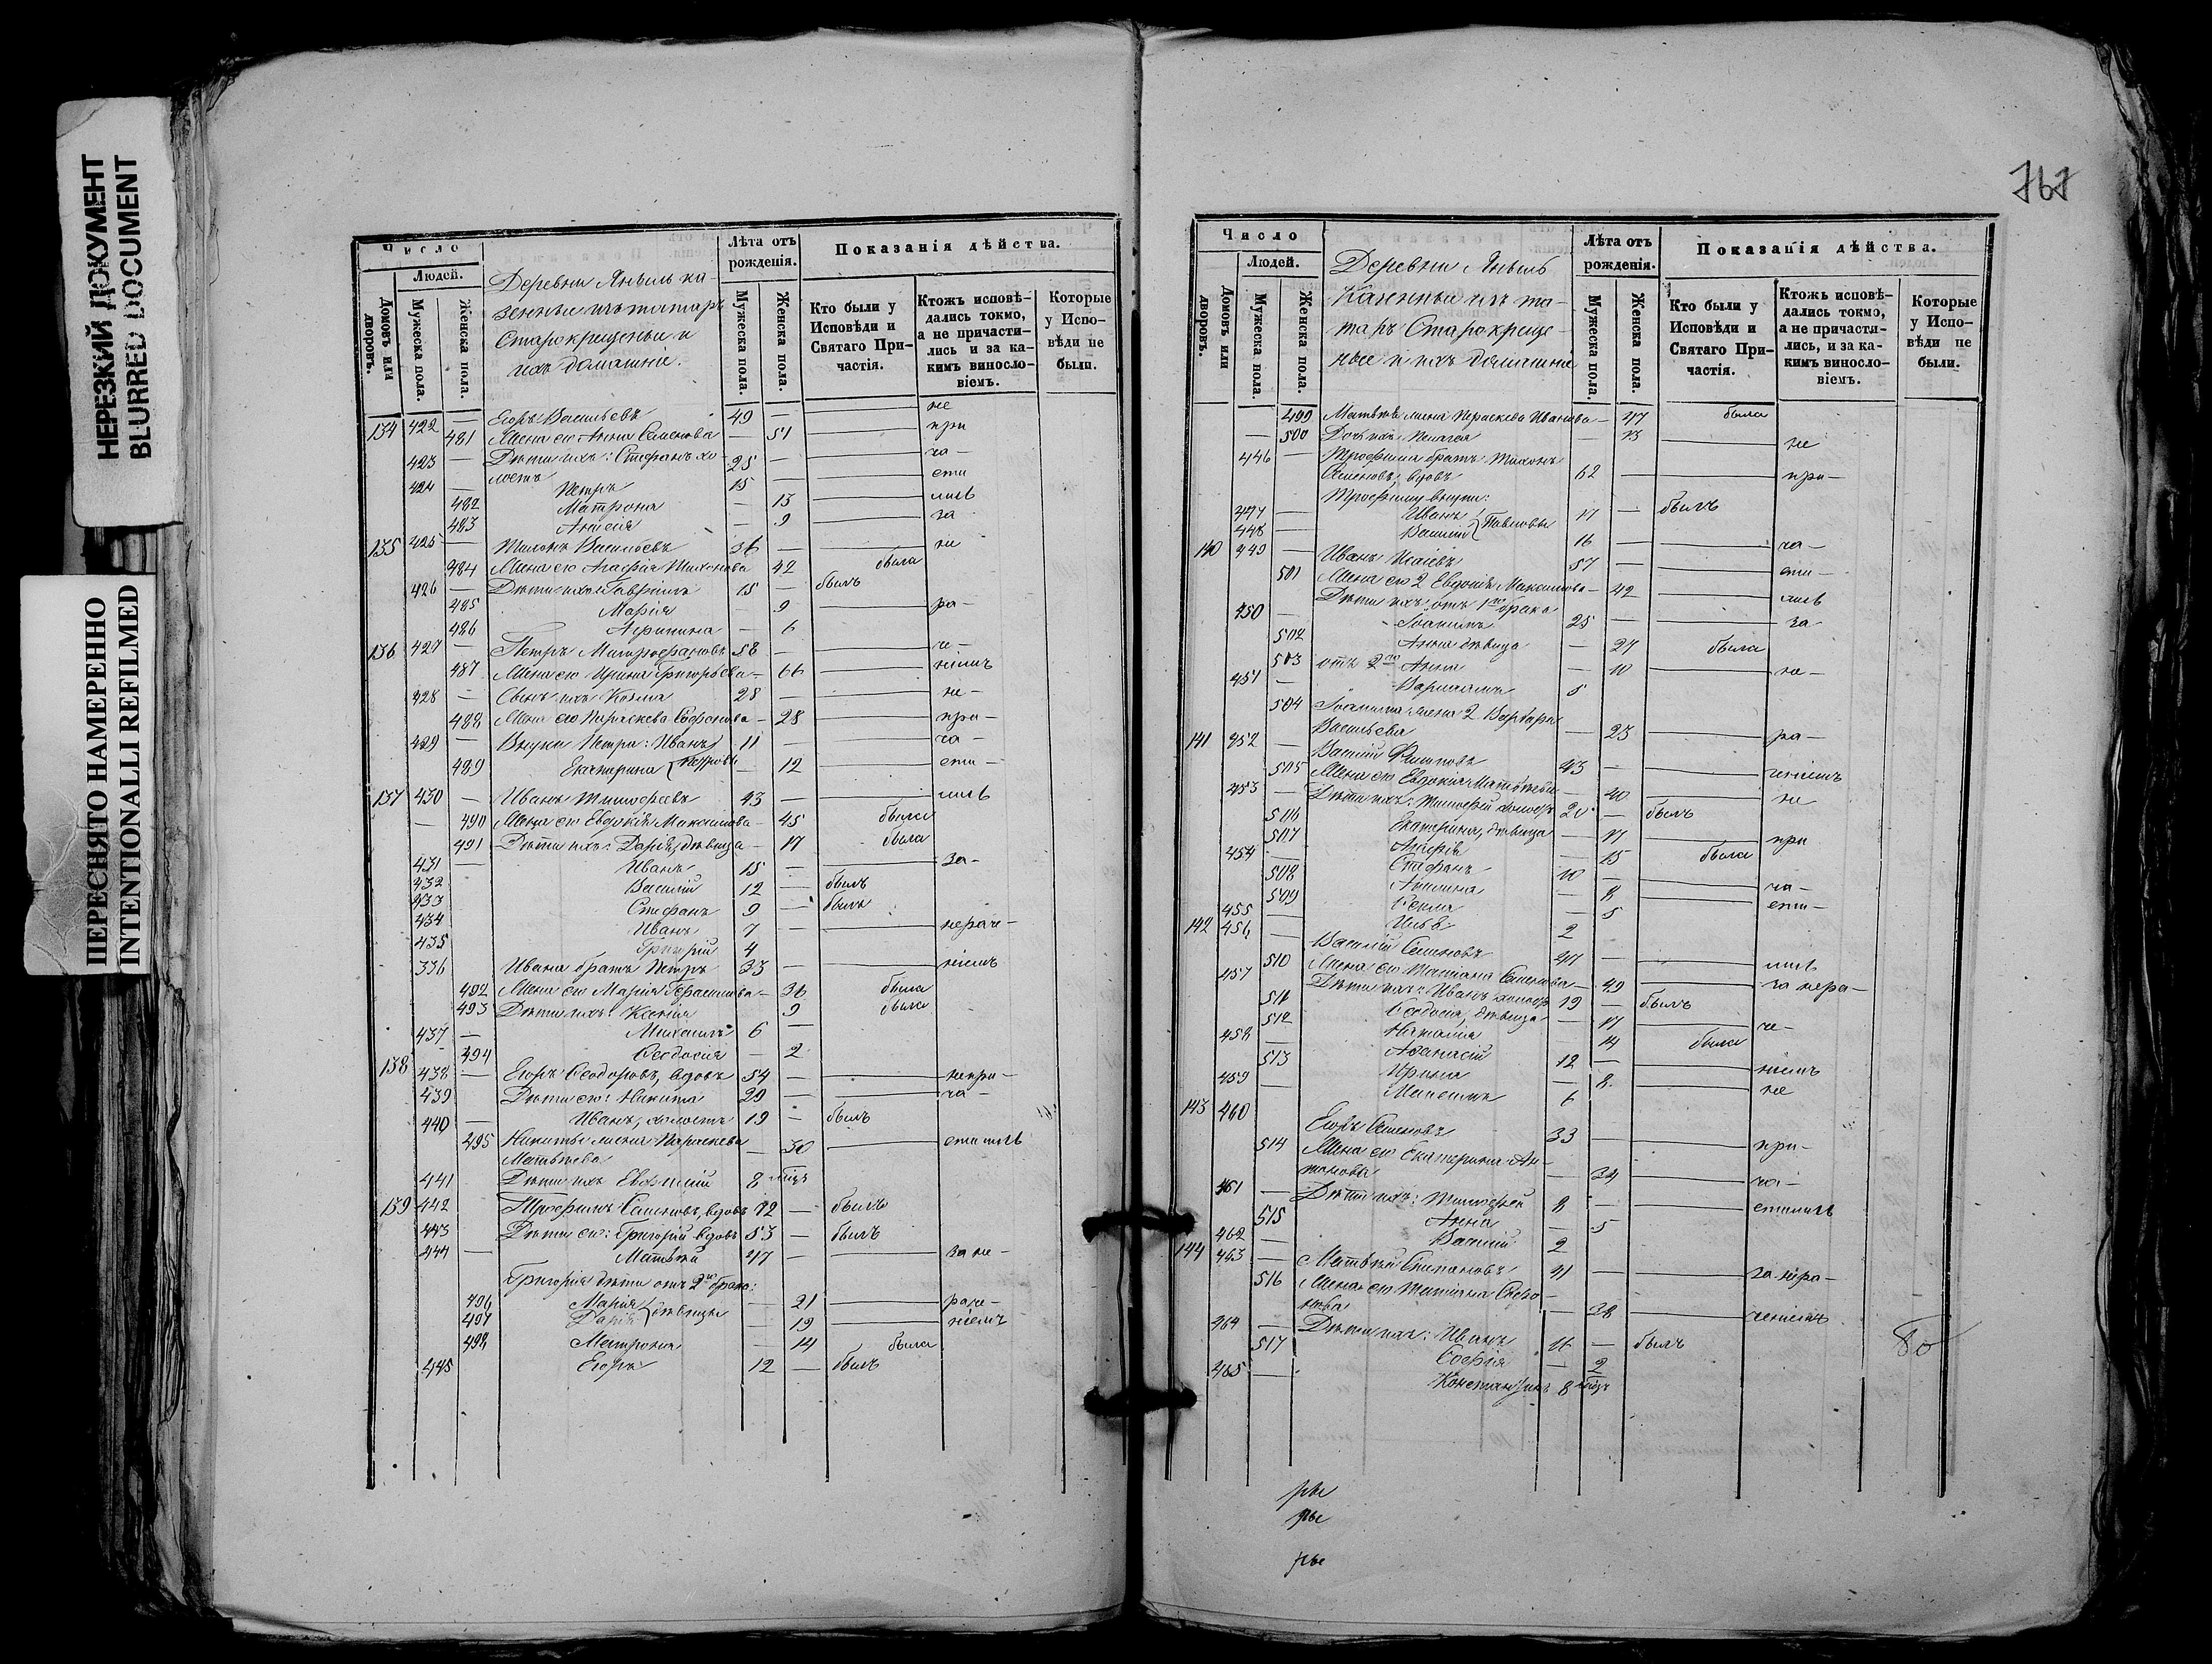 НЕРЕЗКИЙ ДОКУМЕНТ
BLURRED DOCUMENT
ПЕРЕСНЯТО НАМЕРЕННО
INTENTIONALLI REFILMED
Число
Людей.
Домовъ или дворовъ.
Мужеска пола.
Женска пола.
Деревни Яныль ка-
зенныи изъ татаръ
Старокрещеныи и
ихъ домашніе.
Лѣта отъ рожденія.
Мужеска пола.
Женска пола.
Показанія дѣйства.
Кто были у Исповѣди и Святаго При-частія.
Ктожъ исповѣ-дались токмо, а не причасти-лись и за ка-кимъ винослo-віемъ.
Которые у Испо-вѣди не были.
134 422 — Егоръ Васильевъ 49 — — не
481 Жена его Анна Семенова — 51 — при
423 — Дѣти ихъ: Стефанъ хо- 25 — — ча-
лостъ
424 — Петръ 15 — — сти
482 Матрона — 13 — лись
483 Анисія — 9 — за
135 425 — Тихонъ Васильевъ 36 — — не
484 Жена его Агафія Тихонова 42 была
426 — Дѣти ихъ: Гавріилъ 15 — былъ
485 Марія — 9 — ра-
486 Агрипина — 6
136 427 — Петръ Митрофановъ 58 — — че-
487 Жена его Ирина Григорьева — 66 — ніемъ
428 — Сынъ ихъ Козма 28 — — не-
488 Жена его Параскева Софонова — 28 — при-
429 — Внуки Петра: Иванъ 11 — — ча-
489 Екатерина Петровы — 12 — сти-
137 430 — Иванъ Тимофеевъ 43 — — лись
— 490 Жена его Евдокія Максимова — 45 была
491 Дѣти ихъ: Дарія, дѣвица — 17 была
431 — Иванъ 15 — — за-
432 Василій 12 — былъ
433 Стефанъ 9 — былъ
434 Иванъ 7 — — нераче-
435 Григорій 4
336 Ивана братъ Петръ 33 — — ніемъ
492 Жена его Марія Герасимова — 36 была
493 Дѣти ихъ: Ксенія 9 была
437 — Михаилъ 6 —
494 Ѳеодосія — 2
138 438 — Егоръ Ѳеодоровъ, вдовъ 54 — — непри-
439 Дѣти его: Никита 29 — — ча-
440 — Иванъ, холостъ 19 — былъ
495 Никиты жена Параскева
Матвѣева — 30 — стились
441 Дѣти ихъ Евфимій 8 мѣсц
139 442 Трофимъ Семеновъ, вдовъ 72 — былъ
443 Дѣти его: Григорій вдовъ 53 — былъ
444 — Матвѣй 47 — — за не-
Григорія дѣти отъ 2го брака:
496 Марія — 21 — раче-
497 Дарія дѣвицы — 19 — ніемъ
498 Матрона — 14 была
445 Егоръ 12 — былъ
767
Число
Людей.
Домовъ или дворовъ.
Мужеска пола.
Женска пола.
Деревни Яныль
Казенныи изъ та-
таръ Старокреще-
ные и ихъ домашніе
Лѣта отъ рожденія.
Мужеска пола.
Женска пола.
Показанія дѣйства.
Кто были у Исповѣди и Святаго При-частія.
Ктожъ исповѣ-дались токмо, а не причастя-лись, и за ка-кимъ винослo-віемъ.
Которые у Испо-вѣди не были.
499 Матвѣя жена Параскева Иванова — 47 была
— 500 Дочь ихъ Пелагея — 13 — не
446 — Трофима братъ Тихонъ
Семеновъ, вдовъ 62 — — при-
Трофиму внуки:
447 — Иванъ 17 — былъ
448 — Василій Павловы 16 — — ча-
140 449 — Иванъ Исаіевъ 57 — — сти-
501 Жена его 2 Евдокія Максимова — 42 — лись
Дѣти ихъ отъ 1го брака
450 — Іоакимъ 25 — — за-
502 Анна дѣвица — 27 была
503 отъ 2го Анна — 10 — не-
451 — Варлаамъ 5
504 Іоакима жена 2 Варвара
Васильева — 23 — ра-
141 452 — Василій Филиповъ 43 — — ченіемъ
505 Жена его Евдокія Матвѣева — 40 — не
453 — Дѣти ихъ: Тимофей холостъ 20 — былъ
506 Екатерина, дѣвица — 17 — при
507 Агафія — 15 была
454 — Стефанъ 10 — — ча-
508 Акилина — 8 — сти-
509 Ѳекла — 5
455 — Илья 2
142 456 — Василій Семеновъ 47 — — лись
510 Жена его Татіана Семенова — 49 — за нера-
457 Дѣти ихъ: Иванъ холостъ 19 — былъ
511 Ѳеодосія, дѣвица — 17 — че-
512 Наталія — 14 была
458 — Афанасій 12 — — ніемъ
513 Ирина — 8 — не
459 — Максимъ 6
143 460 Егоръ Семеновъ 33 — — при-
514 Жена его Екатерина Ан-
тонова — 34 — ча-
461 — Дѣти ихъ: Тимофей 8 — — стились
515 Анна — 5
462 — Василій 2
144 463 — Матвѣй Степановъ 41 — — за нера-
516 Жена его Татіана
— 38 — ченіемъ
464 — Дѣти ихъ: Иванъ 11 — былъ
517 Софія — 2
465 — Константинъ 8 мѣсц